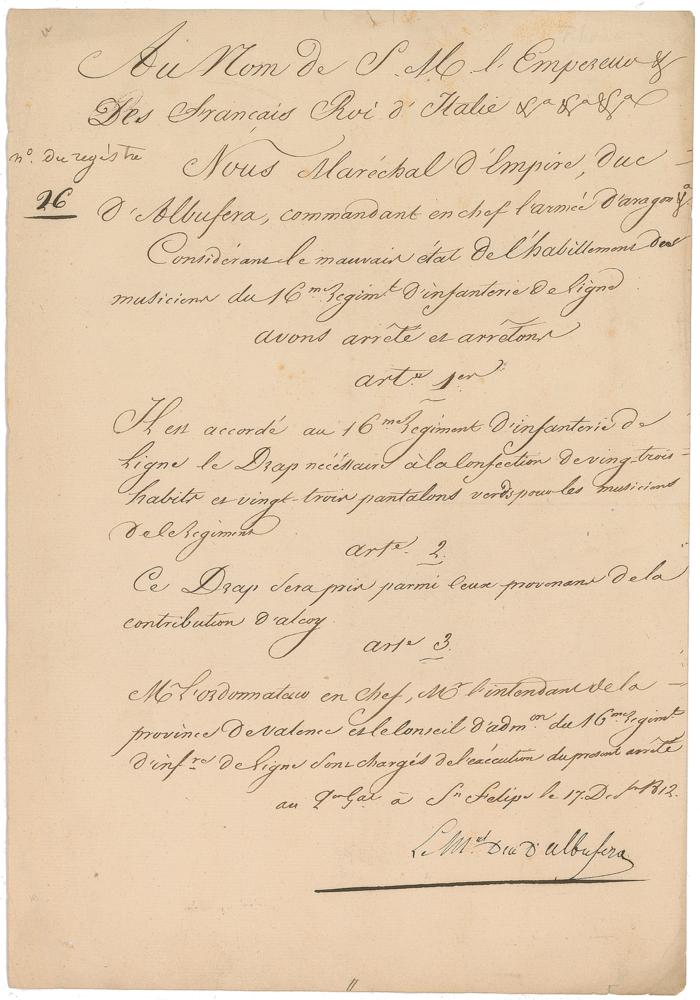 Au Nom de S. M. l. Empereur &
Des Français Roi d'Italie &a &a &a
n.º du registre
26
Nous Maréchal d'Empire, duc
d'Albufera, commandant en chef l'armée d'aragon &a
Considérant le mauvais état de l'habillement des
musiciens du 16me Regimt d'infanterie de Ligne
avons arrêté et arrêtons
arte 1er
Il est accordé au 16me Regiment d'infanterie de
Ligne le Drap nécéssaire à la Confection de ving-trois
habits et vingt-trois pantalons verds pour les musiciens
de le Regiment
arte 2.
Ce Drap sera pris parmi ceux provenans de la
contribution d'alcoy
arte 3.
Mr L'ordonnateur en chef, Mr l'intendant de la
province de Valence et le Conseil d'admon du 16me Regimt
d'infre de Ligne sont chargés de l'exécution du present arrêté
au Qer Gal à Sn Felipe le 17. Des 1812.
Le Mal Duc D'albufera